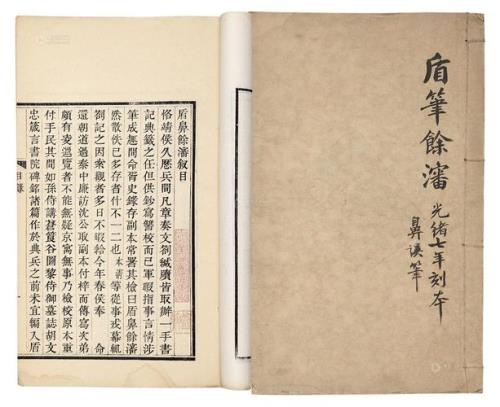 盾筆餘瀋
光緒七年刻本
鼻誤筆
盾鼻餘瀋敘目
恪靖侯久歷兵間凡章奏文劄緘牘皆取辦一手書
記典籤之任但供鈔寫督校而已軍暇指事言情涉
筆成趣間命胥史錄存副本常署其檢曰盾鼻餘瀋
然散佚已多存者什不一二也本清等從事戎幕輒
劄記之因索觀者多日不暇給今年春侯奉 命
還朝道過秦中廉訪沈公取副本付梓而傳寫失第
頗有凌遽覽者不能無疑京寓無事乃檢校原本重
付手民其間如孫侍講蒼筤谷圖黎侍御墓誌胡文
忠箴言書院碑銘諸篇作於典兵之前未宜闌入盾
目錄